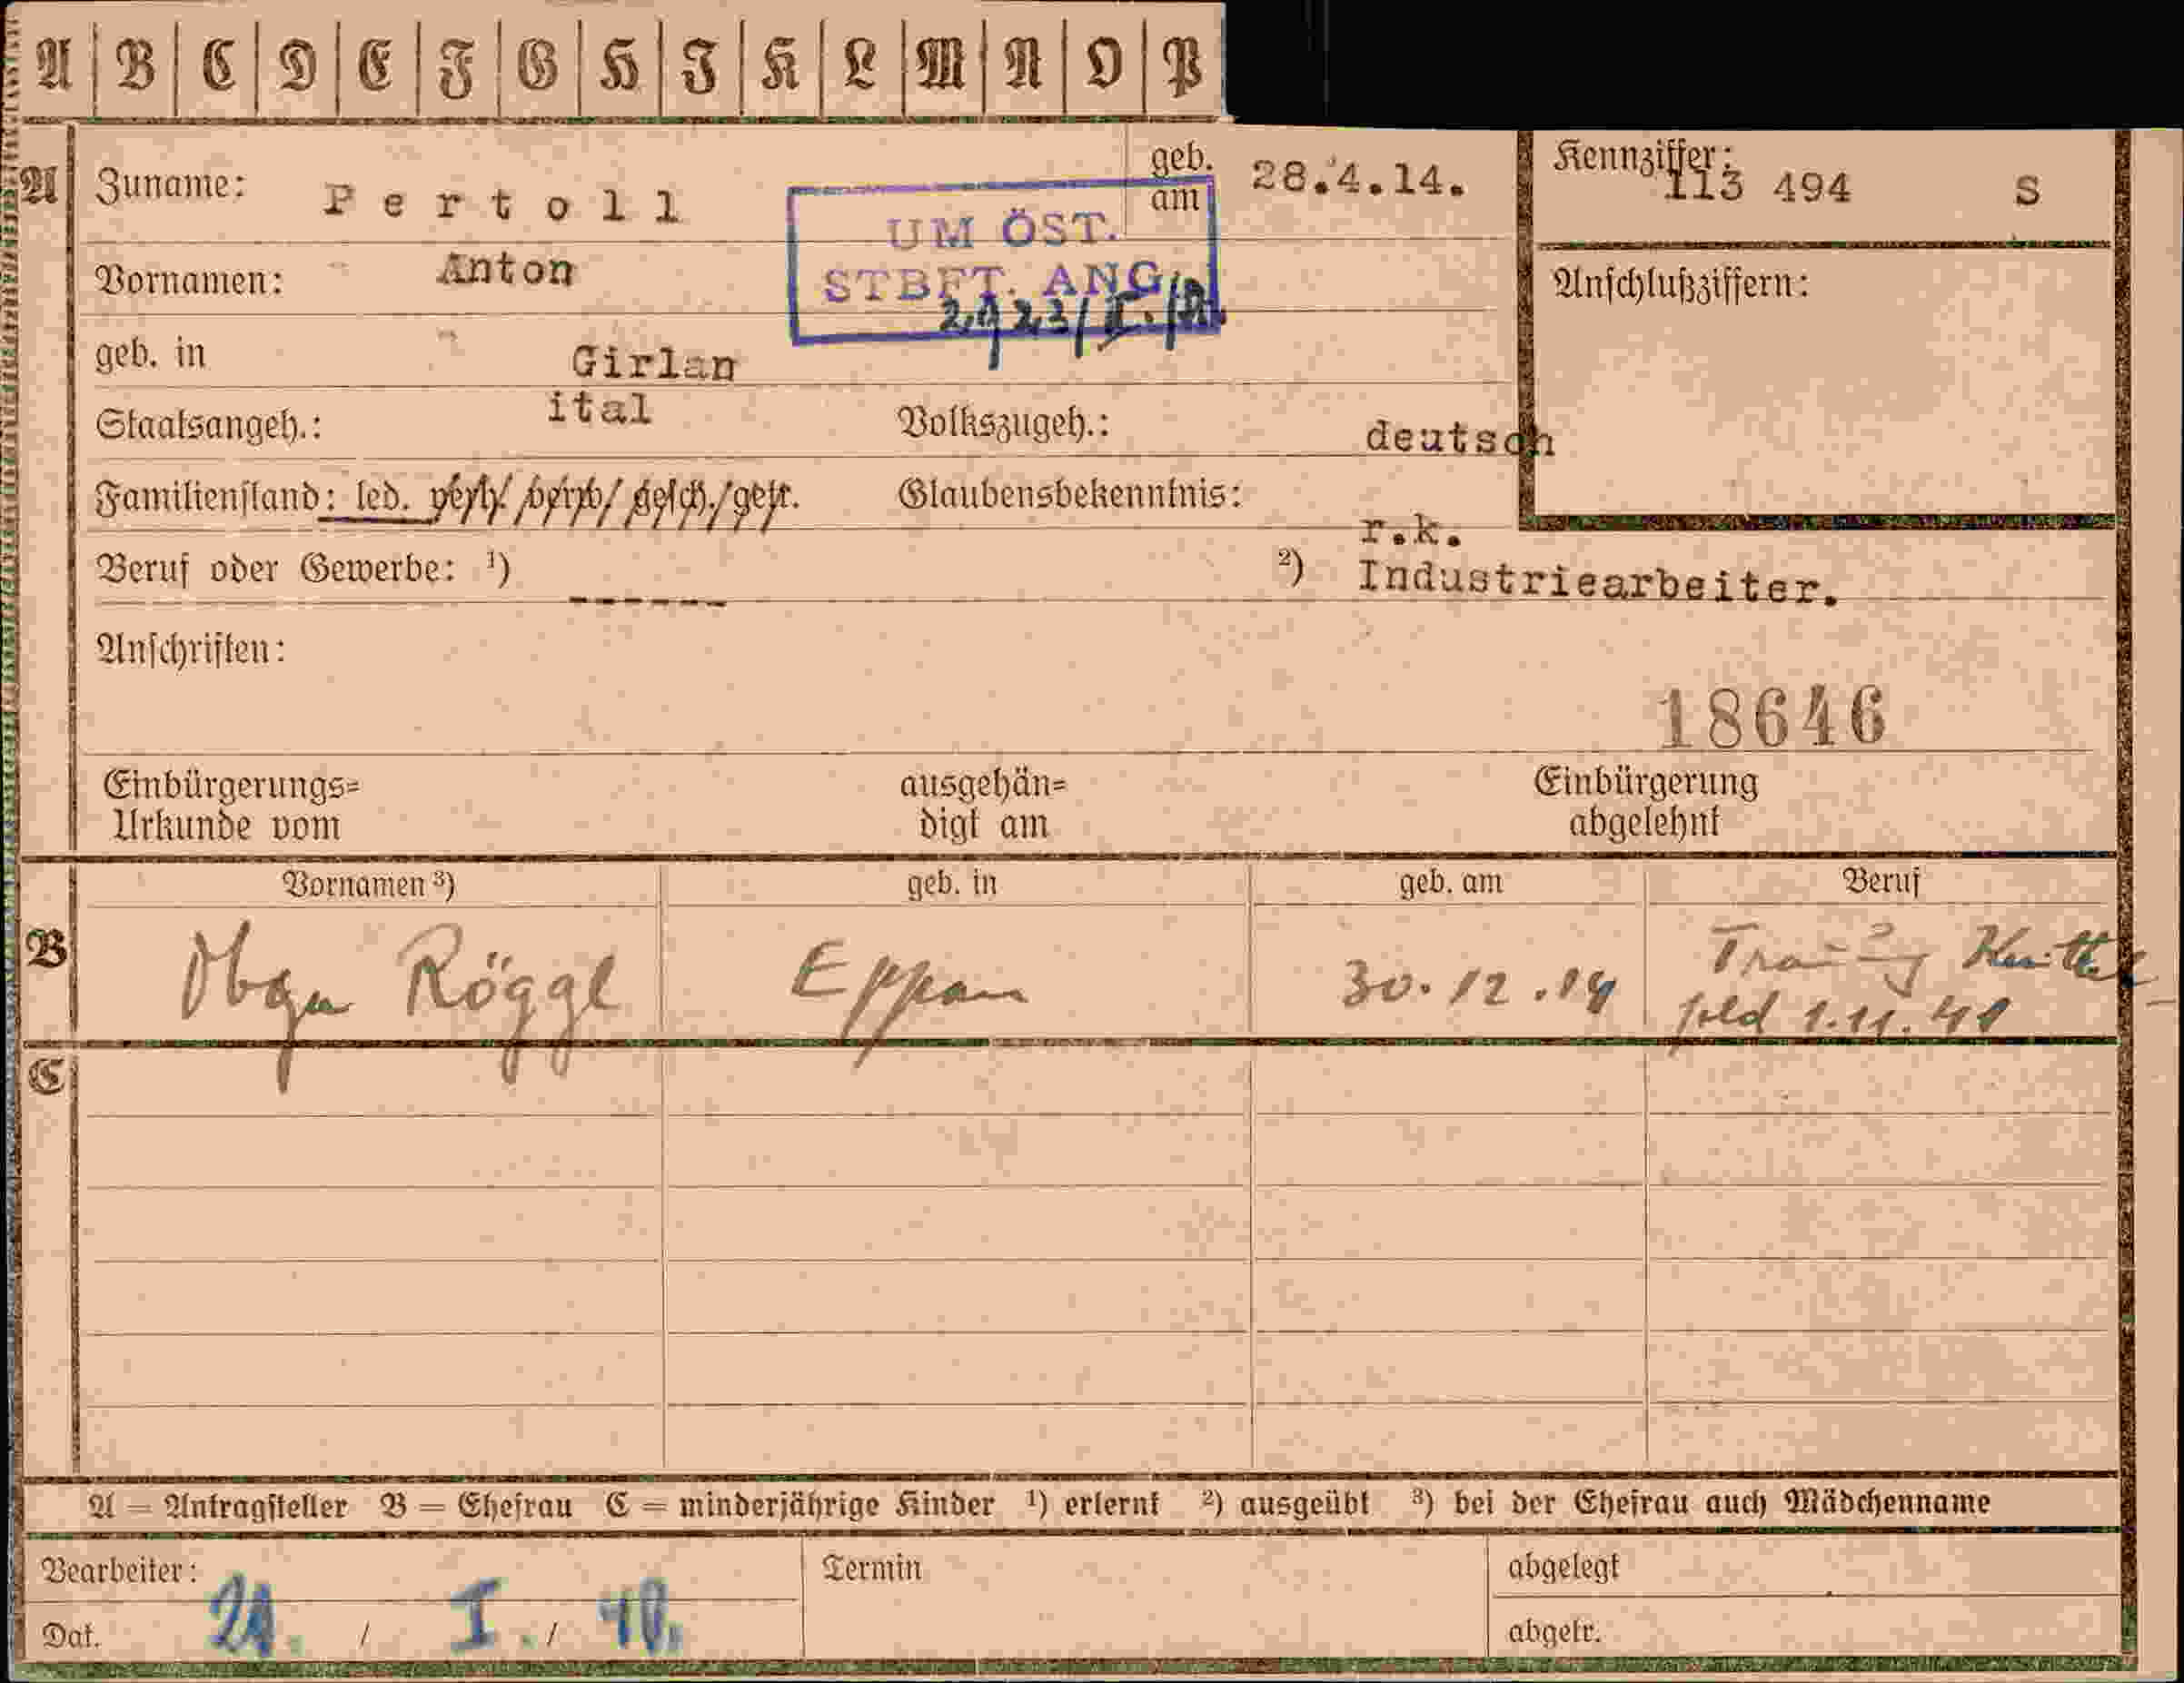 A B C D E F G H I K L M N O P
A Zuname: Pertoll geb. am 28.4.14. Kennziffer: 113 494 S
UM ÖST.
STBFT. ANG.
Vornamen: Anton Anschlußziffern:
geb. in Girlan
Staatsangeh.: ital Volkszugeh.: deutsch
Familienstand: led. verh./verw./gesch./getr. Glaubensbekenntnis: r.k.
Beruf oder Gewerbe: ¹) ------ ²) Industriearbeiter.
Anschriften:
18646
Einbürgerungs= ausgehän= Einbürgerung
Urkunde vom digt am abgelehnt
Vornamen ³) geb. in geb. am Beruf
B Olga Röggl Eppan 30.12.14
feld 1.11.41
C
A = Antragsteller B = Ehefrau C = minderjährige Kinder ¹) erlernt ²) ausgeübt ³) bei der Ehefrau auch Mädchenname
Bearbeiter: Termin abgelegt
Dat. / I. / 40. abgetr.